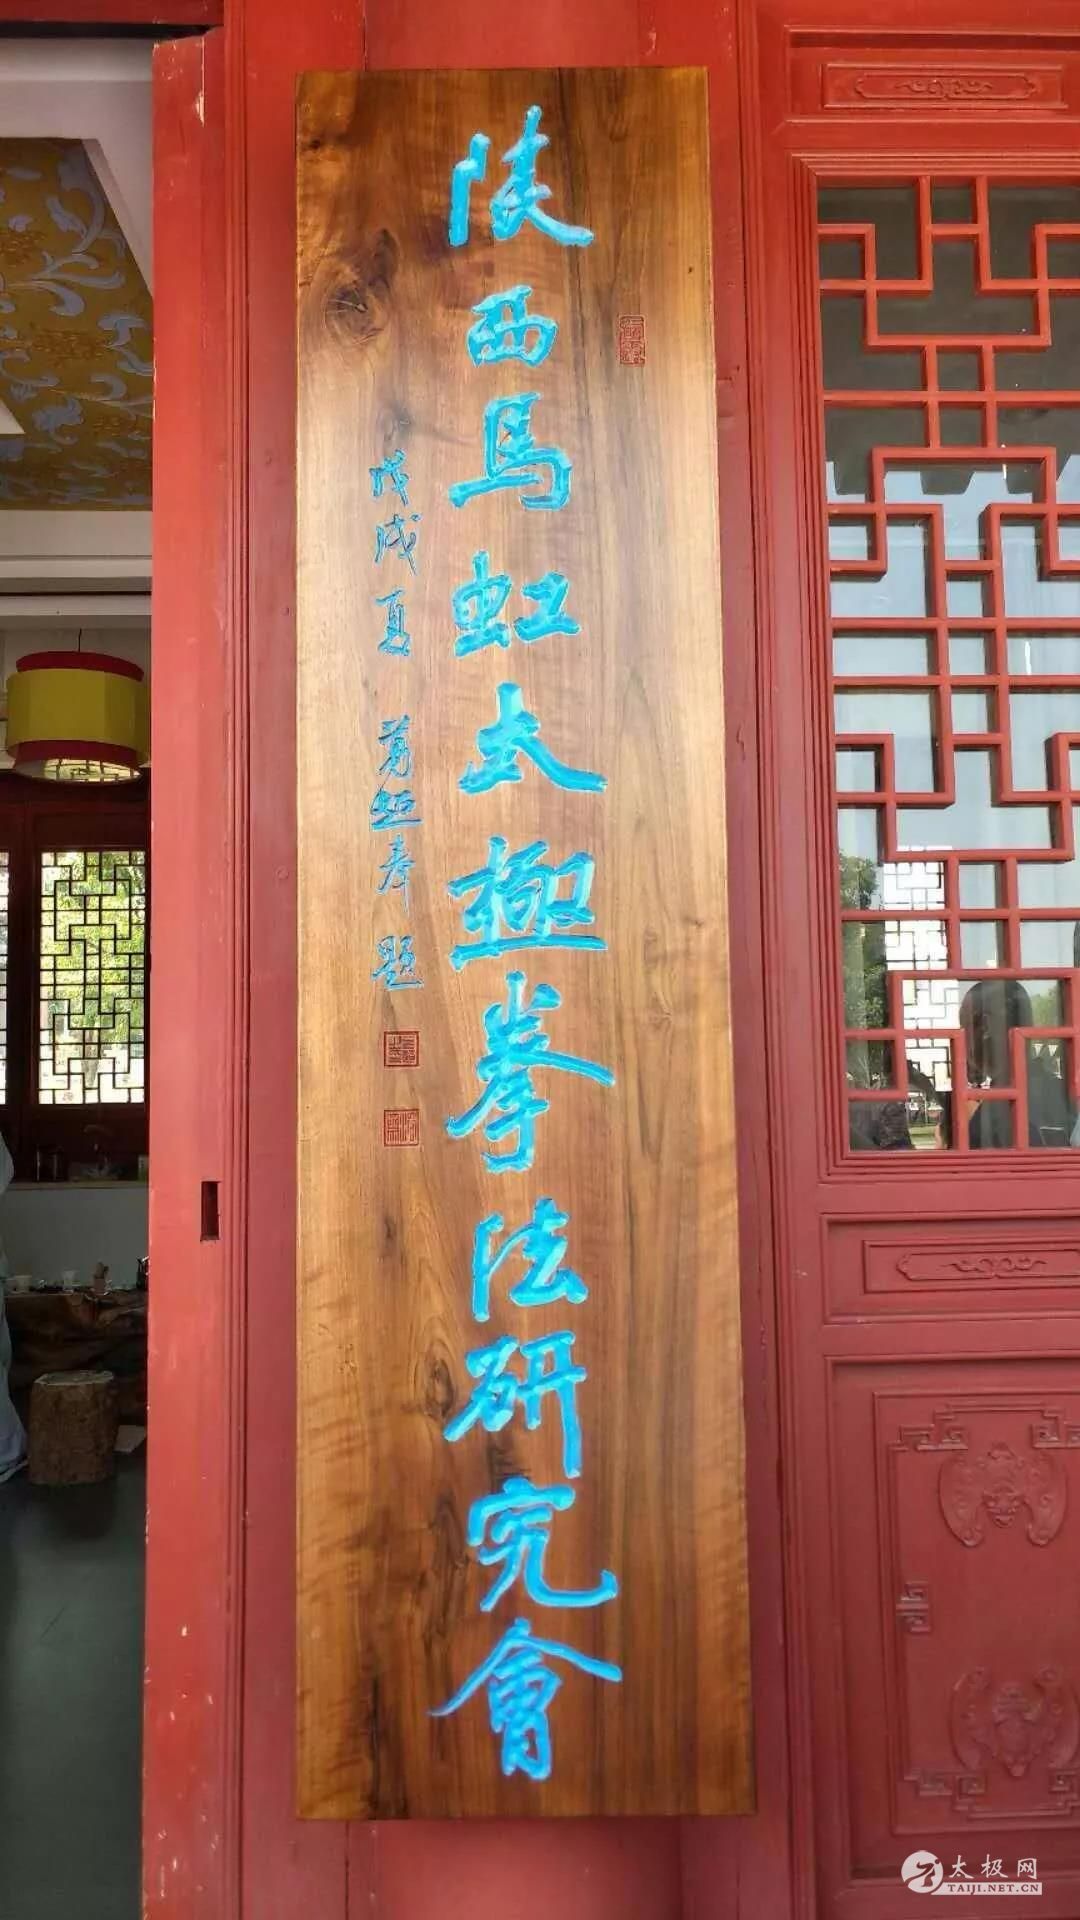 陕西馬虹太極拳法研究會
戊戌夏
題
太极网
TAIJI.NET.CN